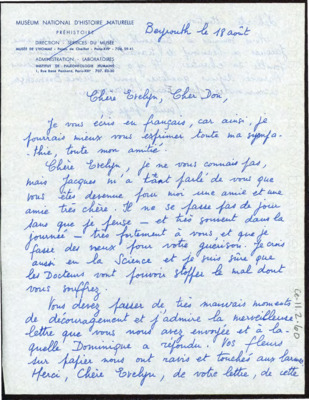 MUSEUM NATIONAL D'HISTOIRE NATURELLE
PRÉHISTOIRE
DIRECTION - SERVICES DU MUSÉE
MUSÉE DE L'HOMME - Palais de Chaillot - Paris-XVIe
ANNEXE - LABORATOIRES
INSTITUT DE PALÉONTOLOGIE HUMAINE
1, Rue René Panhard, Paris-XIIIe
Beyrouth le 18 août
Chère Evelyn, Cher Don,
Je vous écris en français, car ainsi, je
pourrais mieux vous exprimer toute ma sympa-
thie, toute mon amitié.
Chère Evelyn, je ne vous connais pas,
mais Jacques m'a tant parlé de vous que
vous êtes devenue pour moi une amie et une
amie très chère. Il ne se passe pas de jour
sans que je pense - et très souvent dans la
journée - très fortement à vous, et que je
fasse des vœux pour votre guérison. Je crois
aussi en la Science et je suis sûre que
les Docteurs vont pouvoir stopper le mal dont
vous souffrez.
Vous devez passer de très mauvais moments
de découragement et j'admire la merveilleuse
lettre que vous nous avez envoyée et à la-
quelle Dominique a répondu. Vos fleurs
sur papier nous ont ravis et touchés aux larmes
Merci, Chère Evelyn, de votre lettre, de cette